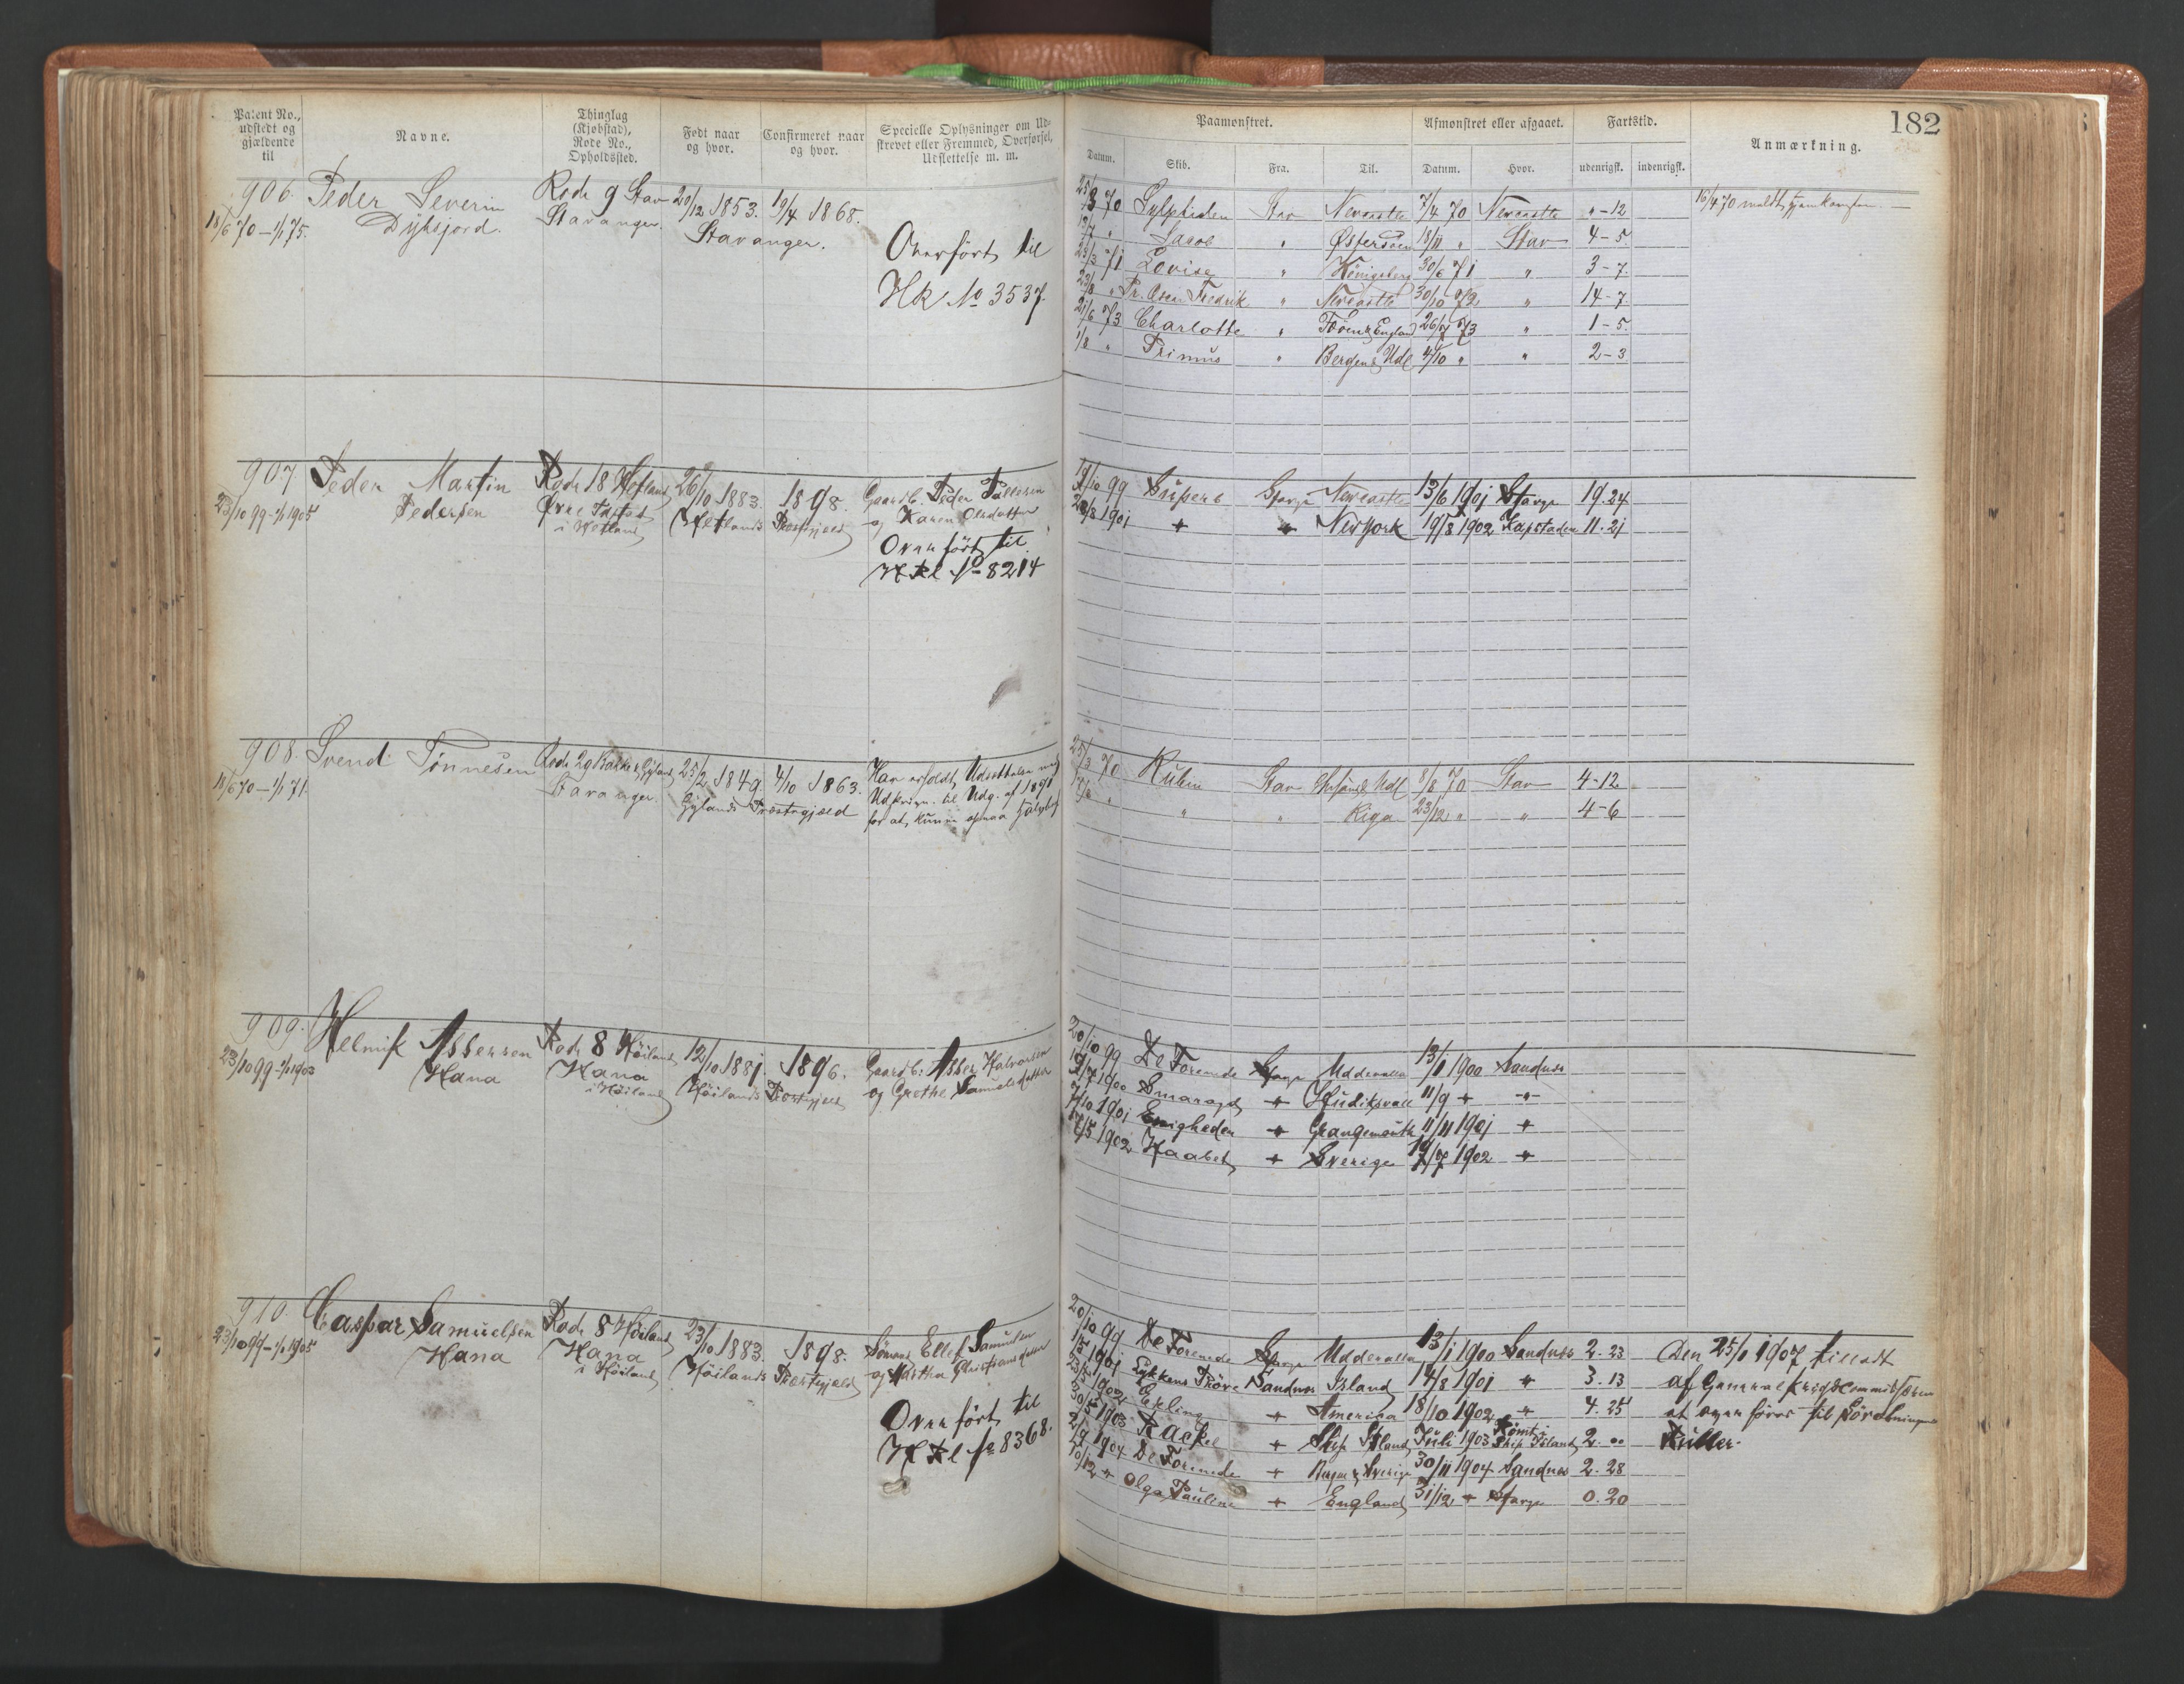 Patent No., udstedt og gjældende til
Navne.
Thinglag (Kjøbstad), Rode No., Opholdssted.
Født naar og hvor.
Confirmeret naar og hvor.
Specielle Oplysninger om Udskrevet eller Fremmed, Overførsel, Udslettelse m. m.
Paamønstret.
Afmønstret eller afgaaet.
Fartstid.
Anmærkning.
182
Datum.
Skib.
Fra.
Til.
Datum.
Hvor.
udenrigsk.
indenrigsk.
906. Peder Severin Rode 9 Stav 20/12 1853. 19/4 1868.
18/6 70 – 1/1 75. Dyhsjord. Stavanger. Stavanger.
Overført til
Hk No 3537.
25/3 70 Sylphiden Stav Newcastle 7/4 70 Newcastle " – 12 16/4 70 meldt hjemkommen
13/7 " Jacob " Østersøen 18/11 " Stav 4 – 5.
23/3 71 Lovise " Königsberg 30/6 71 " 3 – 7.
23/8 " Pr. Oscar Fredrik " Newcastle 30/10 72 " 14 – 7.
21/6 73 Charlotte " England 26/7 73 " 1 – 5.
1/8 " Primus " Bergen & Udl 4/10 " " 2 – 3
907. Peder Martin Rode 18 Hetland 26/10 1883. 1898. Gaardb. Peder Pallesen
23/10 99 – 1/1 1905 Pedersen Øvre Tasta i Hetland Hetlands Præstegjeld og Karen Olsdatter
Overført til
HKl No 8214
19/10 99 Superb Stavgr Newcastle 13/6 1901 Stavgr 19. 24
28/8 1901 + + New York 19/8 1902 Kapstaden 11. 21
908. Svend Tönnesen Rode 29 Bakke & Gyland 25/2 1849. 4/10 1863. Har erholdt Udsættelse med
18/6 70 – 1/1 71. Stavanger. Gylands Præstegjæld Udskrivn. til Udg. af 1871
for at kunne opnaa
25/3 70 Rubin Stav Udl 8/8 70 Stav 4 – 12.
17/8 " " " Riga 23/12 " " 4 – 6
909. Helmik Assersen Rode 8 Höiland 12/10 1881. 1896. Gaardb: Asser Halvorsen
23/10 99 – 1/1 1903 Hana Hana i Höiland Höilands Præstegjeld og Grethe Samuelsdatter
20/10 99 De Forenede Stavgr Uddevalla 13/1 1900 Sandnes
19/7 1900 Smaragd + Hudiksvall 11/9 + +
7/10 1901 Enigheden + Grangemouth 11/11 1901 +
7/5 1902 Haabet + Sverige 19/7 1902 +
910. Caspar Samuelsen Rode 8 Höiland 23/10 1883. 1898. Sömand Ellef Samuelsen
23/10 99 – 1/1 1905 Hana Hana i Höiland Höilands Præstegjeld og Martha Christiansdatter
Overført til
HKl No 8368.
20/10 99 De Forenede Stavgr Uddevalla 13/1 1900 Sandnes 2. 23 Den 25/1 1907 tilladt
1/5 1901 Lykkens Pröve Sandnes Island 14/8 1901 + 3. 13 af Generalkrigskommissæren
23/5 1902 Erling + America 18/10 1902 + 4. 25 at overføres til Söröbnings
30/5 1903 Rackel + Ship Island Juli 1903 Römt i Ship Island 2. " Ruller.
2/9 1904 De Forenede + Bergen & Sverige 30/11 1904 Sandnes 2. 28
10/12 + Olga Pauline + England 31/12 + Stavgr 0. 20